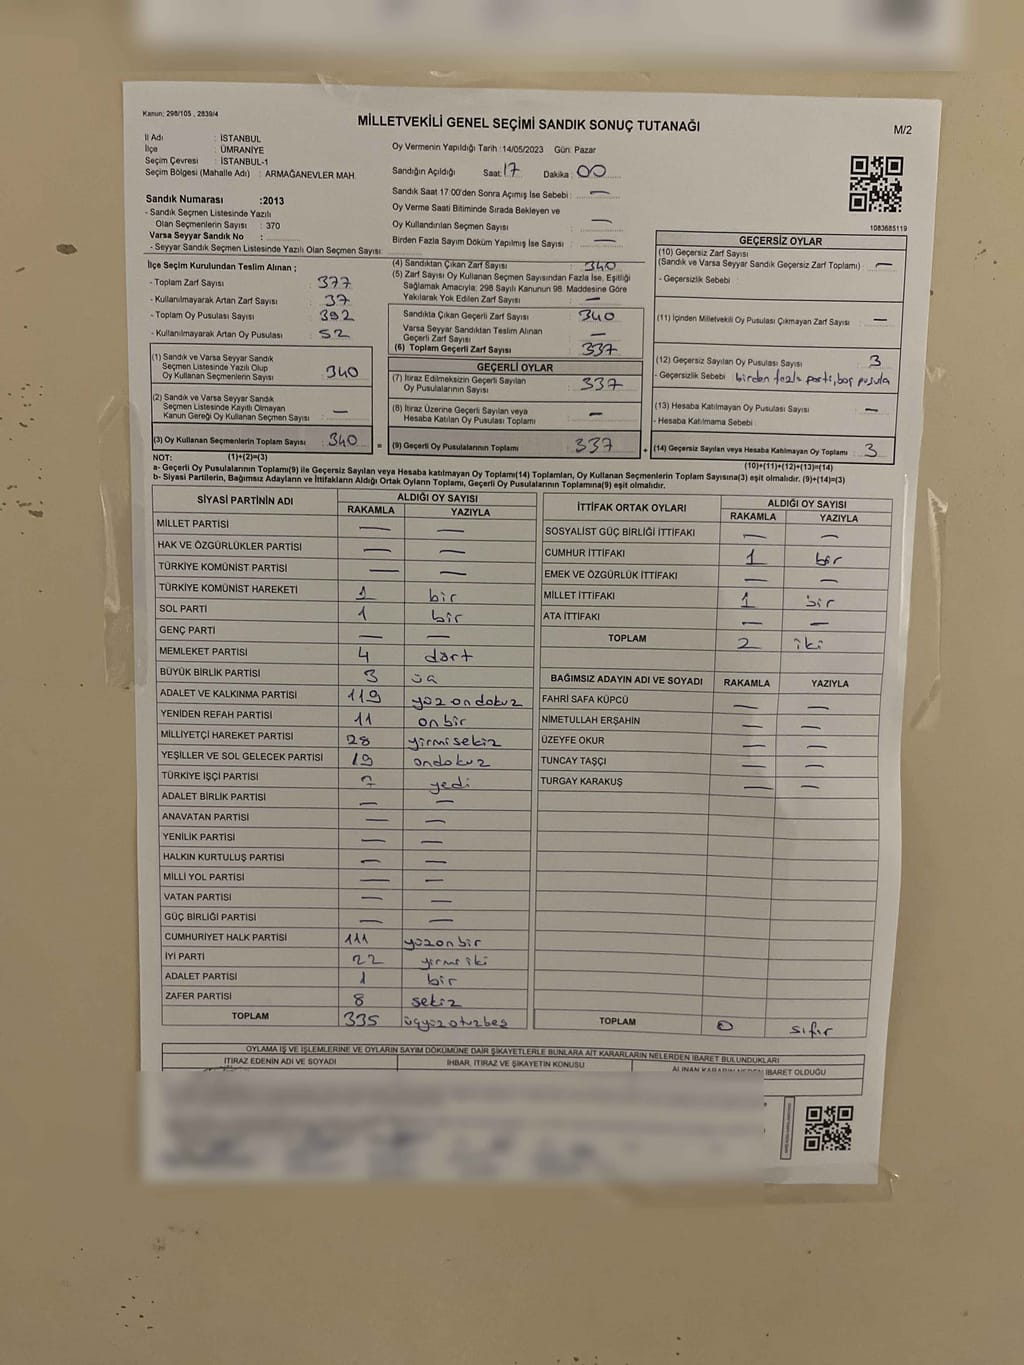 Kanun: 298/105 , 2839/4
MİLLETVEKİLİ GENEL SEÇİMİ SANDIK SONUÇ TUTANAĞI
M/2
İl Adı : İSTANBUL
İlçe : ÜMRANİYE
Seçim Çevresi : İSTANBUL-1
Seçim Bölgesi (Mahalle Adı) : ARMAĞANEVLER MAH.
Sandık Numarası :2013
- Sandık Seçmen Listesinde Yazılı
Olan Seçmenlerin Sayısı : 370
Varsa Seyyar Sandık No :
- Seyyar Sandık Seçmen Listesinde Yazılı Olan Seçmen Sayısı:
Oy Vermenin Yapıldığı Tarih :14/05/2023 Gün: Pazar
Sandığın Açıldığı Saat: 17 Dakika : 00
Sandık Saat 17:00'den Sonra Açımış İse Sebebi : —
Oy Verme Saati Bitiminde Sırada Bekleyen ve
Oy Kullandırılan Seçmen Sayısı : —
Birden Fazla Sayım Döküm Yapılmış İse Sayısı : —
1083685119
İlçe Seçim Kurulundan Teslim Alınan ;
- Toplam Zarf Sayısı : 377
- Kullanılmayarak Artan Zarf Sayısı : 37
- Toplam Oy Pusulası Sayısı : 392
- Kullanılmayarak Artan Oy Pusulası : 52
(1) Sandık ve Varsa Seyyar Sandık
Seçmen Listesinde Yazılı Olup
Oy Kullanan Seçmenlerin Sayısı : 340
(2) Sandık ve Varsa Seyyar Sandık
Seçmen Listesinde Kayıtlı Olmayan
Kanun Gereği Oy Kullanan Seçmen Sayısı : —
(3) Oy Kullanan Seçmenlerin Toplam Sayısı : 340
(4) Sandıktan Çıkan Zarf Sayısı : 340
(5) Zarf Sayısı Oy Kullanan Seçmen Sayısından Fazla İse, Eşitliği
Sağlamak Amacıyla; 298 Sayılı Kanunun 98. Maddesine Göre
Yakılarak Yok Edilen Zarf Sayısı : —
Sandıkta Çıkan Geçerli Zarf Sayısı : 340
Varsa Seyyar Sandıktan Teslim Alınan
Geçerli Zarf Sayısı : —
(6) Toplam Geçerli Zarf Sayısı : 337
GEÇERLİ OYLAR
(7) İtiraz Edilmeksizin Geçerli Sayılan
Oy Pusulalarının Sayısı : 337
(8) İtiraz Üzerine Geçerli Sayılan veya
Hesaba Katılan Oy Pusulası Toplamı : —
= (9) Geçerli Oy Pusulalarının Toplamı : 337
GEÇERSİZ OYLAR
(10) Geçersiz Zarf Sayısı
(Sandık ve Varsa Seyyar Sandık Geçersiz Zarf Toplamı) : —
- Geçersizlik Sebebi :
(11) İçinden Milletvekili Oy Pusulası Çıkmayan Zarf Sayısı : —
(12) Geçersiz Sayılan Oy Pusulası Sayısı : 3
- Geçersizlik Sebebi : birden fazla parti, boş pusula
(13) Hesaba Katılmayan Oy Pusulası Sayısı : —
- Hesaba Katılmama Sebebi :
+ (14) Geçersiz Sayılan veya Hesaba Katılmayan Oy Toplamı : 3
NOT: (1)+(2)=(3)
(10)+(11)+(12)+(13)=(14)
a- Geçerli Oy Pusulalarının Toplamı(9) ile Geçersiz Sayılan veya Hesaba katılmayan Oy Toplamı(14) Toplamları, Oy Kullanan Seçmenlerin Toplam Sayısına(3) eşit olmalıdır. (9)+(14)=(3)
b- Siyasi Partilerin, Bağımsız Adayların ve İttifakların Aldığı Ortak Oyların Toplamı, Geçerli Oy Pusulalarının Toplamına(9) eşit olmalıdır.
SİYASİ PARTİNİN ADI ALDIĞI OY SAYISI
RAKAMLA YAZIYLA
MİLLET PARTİSİ — —
HAK VE ÖZGÜRLÜKLER PARTİSİ — —
TÜRKİYE KOMÜNİST PARTİSİ — —
TÜRKİYE KOMÜNİST HAREKETİ 1 bir
SOL PARTİ 1 bir
GENÇ PARTİ — —
MEMLEKET PARTİSİ 4 dört
BÜYÜK BİRLİK PARTİSİ 3 üç
ADALET VE KALKINMA PARTİSİ 119 yüzondokuz
YENİDEN REFAH PARTİSİ 11 onbir
MİLLİYETÇİ HAREKET PARTİSİ 28 yirmisekiz
YEŞİLLER VE SOL GELECEK PARTİSİ 19 ondokuz
TÜRKİYE İŞÇİ PARTİSİ 7 yedi
ADALET BİRLİK PARTİSİ — —
ANAVATAN PARTİSİ — —
YENİLİK PARTİSİ — —
HALKIN KURTULUŞ PARTİSİ — —
MİLLİ YOL PARTİSİ — —
VATAN PARTİSİ — —
GÜÇ BİRLİĞİ PARTİSİ — —
CUMHURİYET HALK PARTİSİ 111 yüzonbir
İYİ PARTİ 22 yirmi iki
ADALET PARTİSİ 1 bir
ZAFER PARTİSİ 8 sekiz
TOPLAM 335 üçyüzotuzbeş
İTTİFAK ORTAK OYLARI ALDIĞI OY SAYISI
RAKAMLA YAZIYLA
SOSYALİST GÜÇ BİRLİĞİ İTTİFAKI — —
CUMHUR İTTİFAKI 1 bir
EMEK VE ÖZGÜRLÜK İTTİFAKI — —
MİLLET İTTİFAKI 1 bir
ATA İTTİFAKI — —
TOPLAM 2 iki
BAĞIMSIZ ADAYIN ADI VE SOYADI RAKAMLA YAZIYLA
FAHRİ SAFA KÜPCÜ — —
NİMETULLAH ERŞAHİN — —
ÜZEYFE OKUR — —
TUNCAY TAŞÇI — —
TURGAY KARAKUŞ — —
TOPLAM 0 sıfır
OYLAMA İŞ VE İŞLEMLERİNE VE OYLARIN SAYIM DÖKÜMÜNE DAİR ŞİKAYETLERLE BUNLARA AİT KARARLARIN NELERDEN İBARET BULUNDUKLARI
İTİRAZ EDENİN ADI VE SOYADI İHBAR, İTİRAZ VE ŞİKAYETİN KONUSU ALINAN KARARIN NEDEN İBARET OLDUĞU